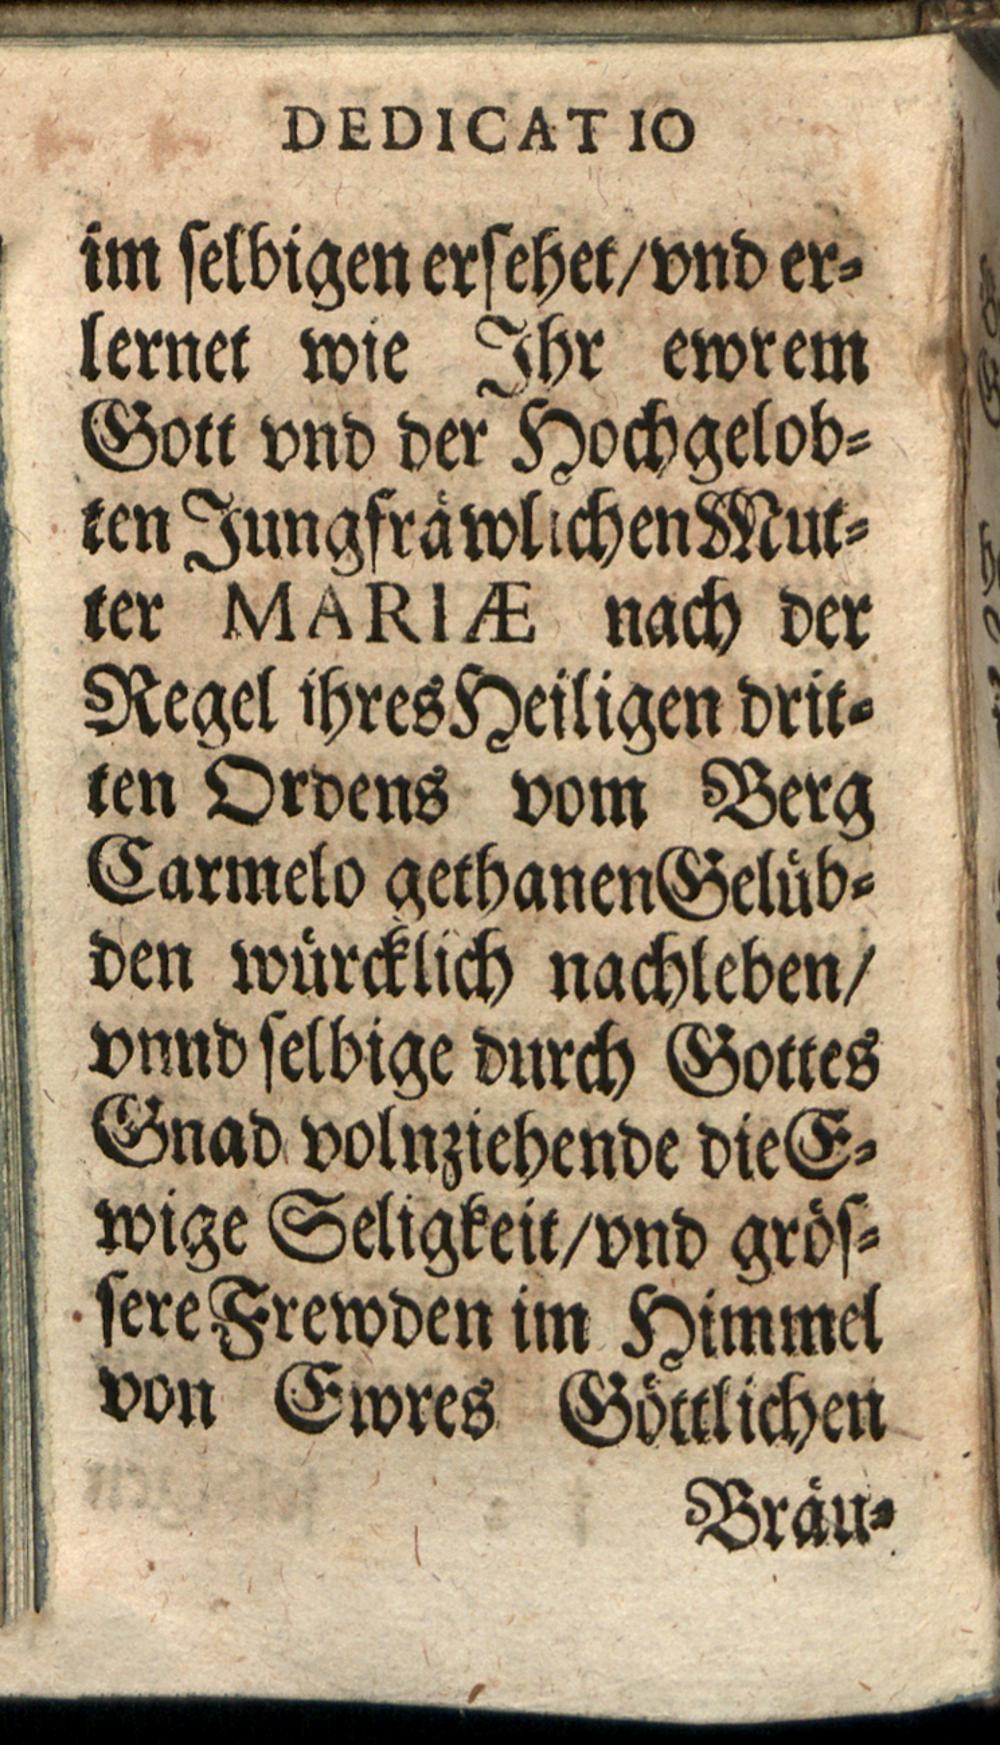 DEDICATIO
im selbigen ersehet/vnd er-
lernet wie Ihr ewrem
Gott vnd der Hochgelob-
ten Jungfräwlichen Mut-
ter MARIÆ nach der
Regel ihres Heiligen drit-
ten Ordens vom Berg
Carmelo gethanen Gelüb-
den würcklich nachleben/
vnnd selbige durch Gottes
Gnad volnziehende die E-
wige Seligkeit/vnd grös-
sere Frewden im Himmel
von Ewres Göttlichen
Bräu-